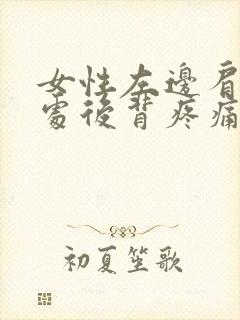 女性左邊肩
處後背疼痛
初夏笙歌